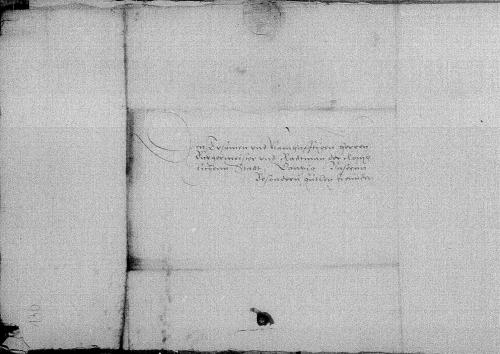 Den Ersamen vnd Namhafftigen herren
Burgermeister vnd Radtman der Konig
lichenn Stadt Dantzig Vnsernn
Besondern gutten freunden
130